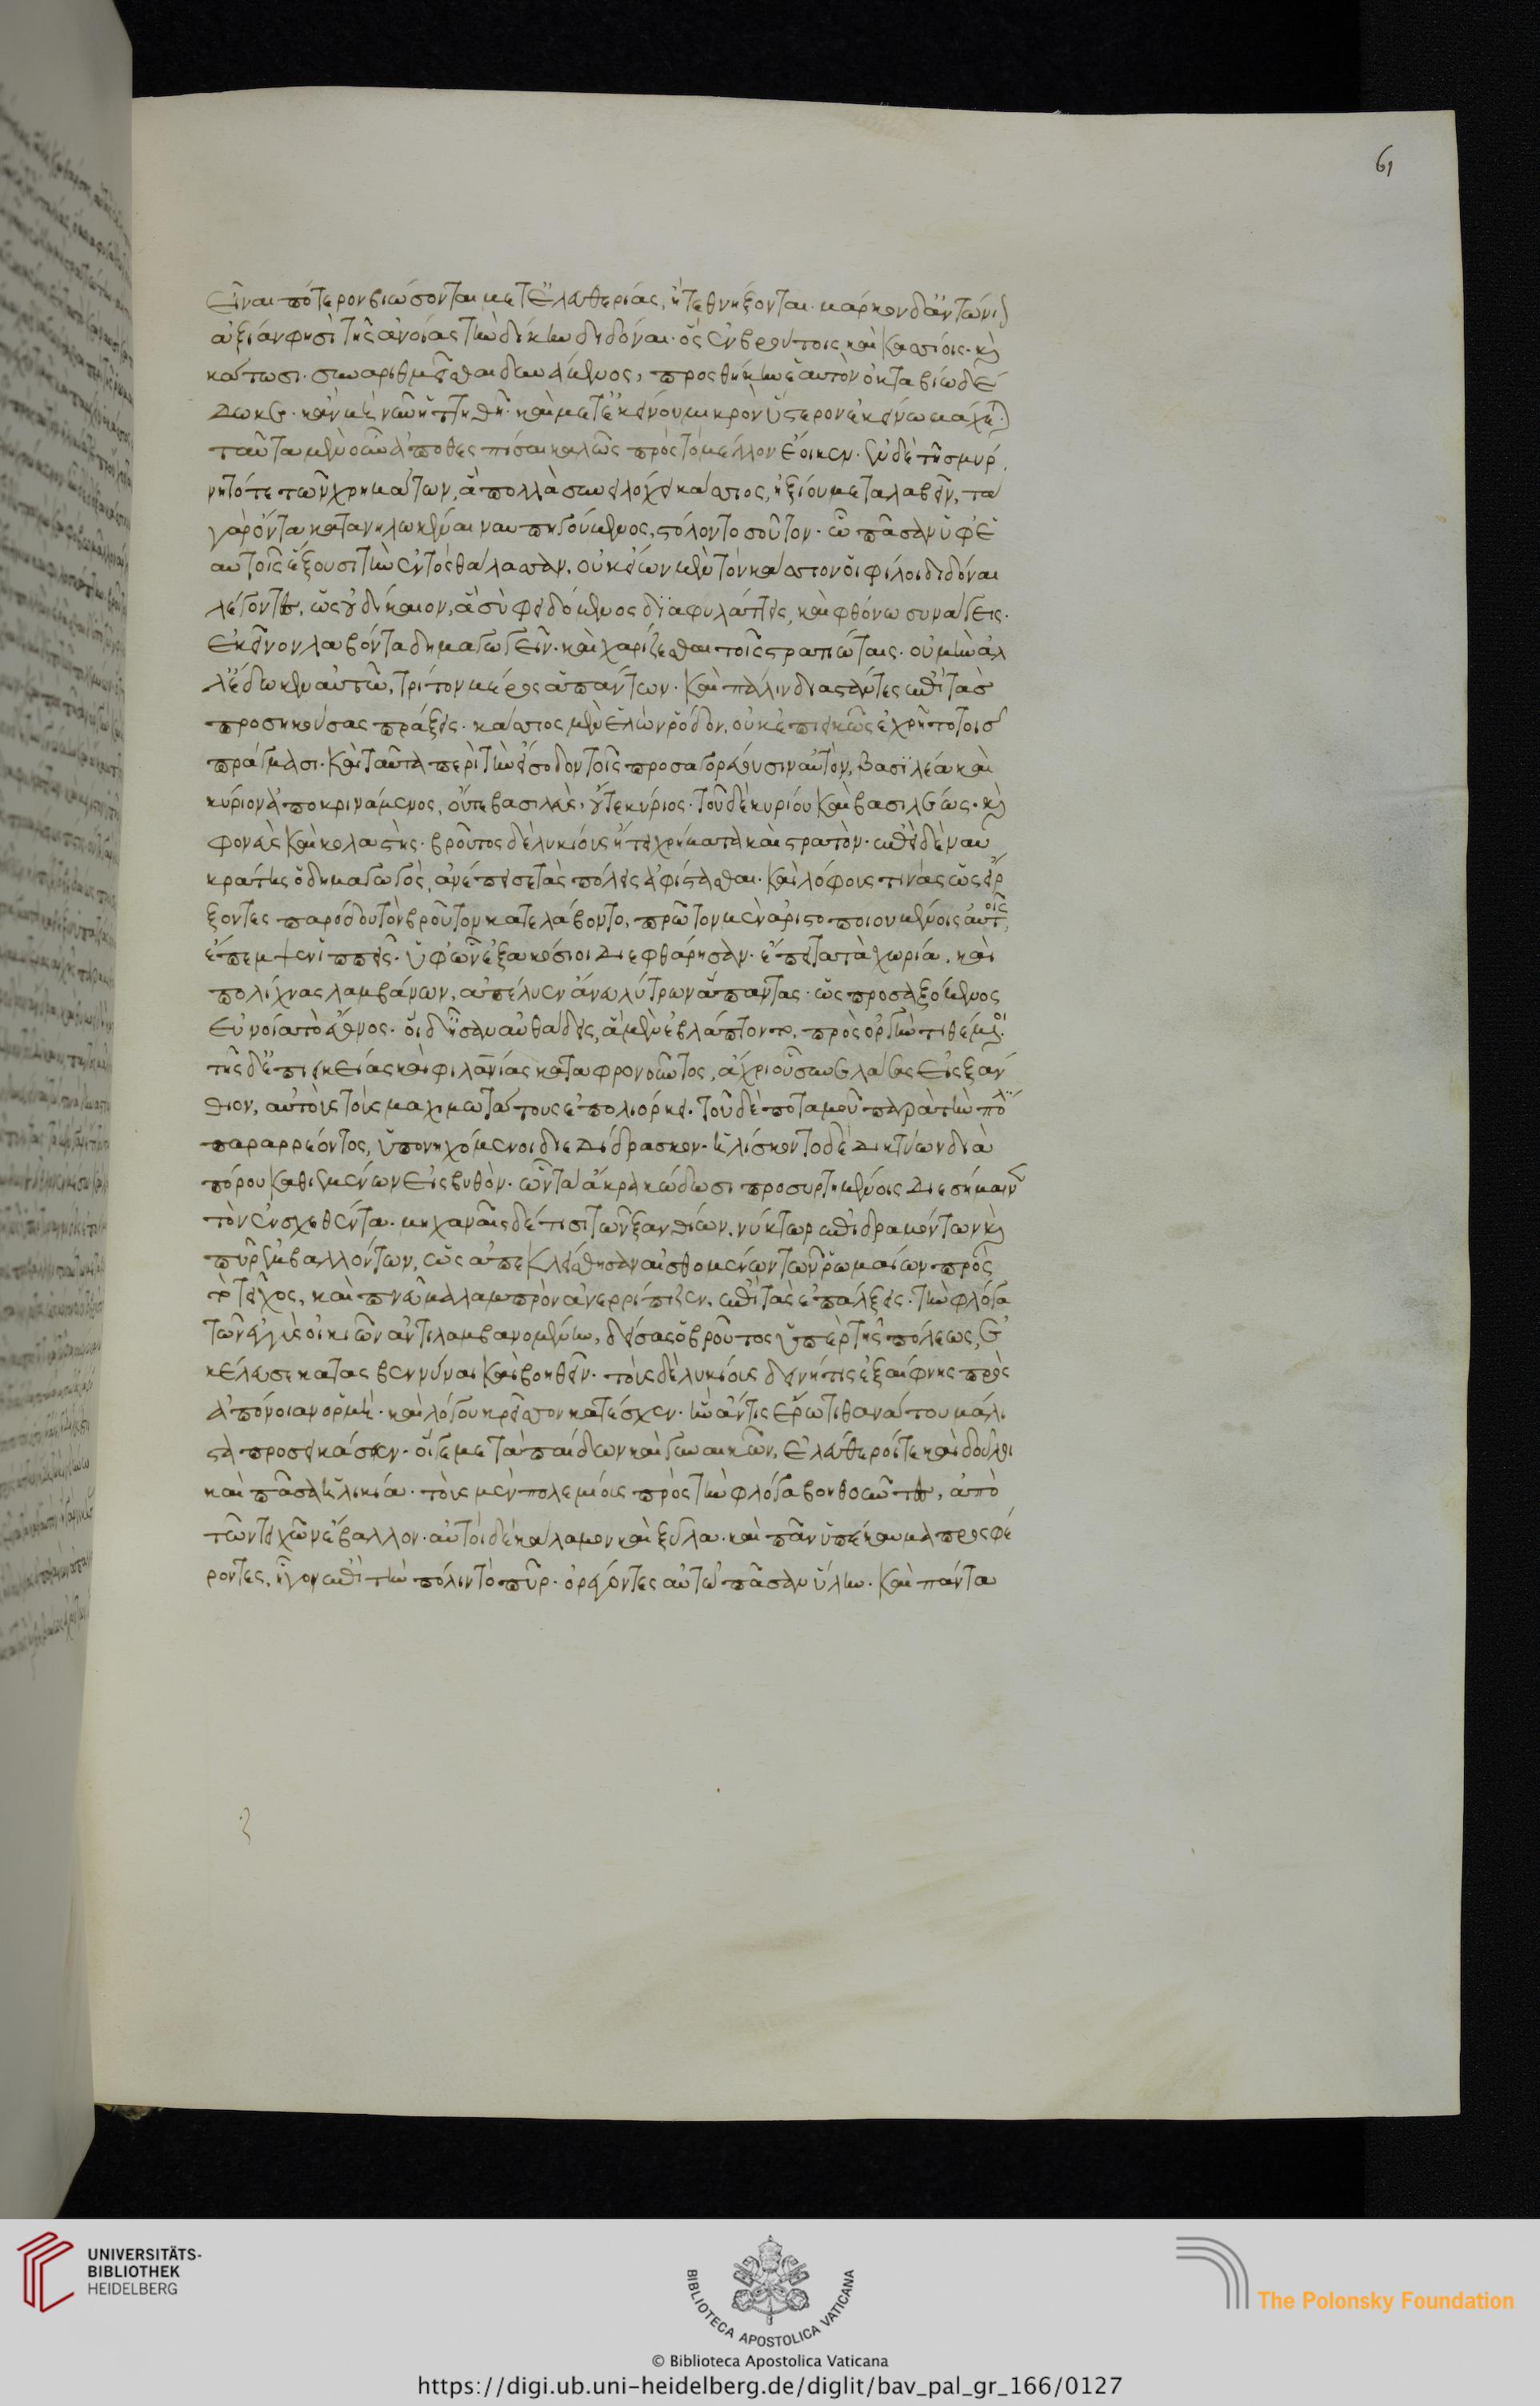 61
εἶναι πότερον βιώσονται μετ' ἐλευθερίας, ἢ τεθνήξονται. μάρκον δ' ἀντώνι
ἀξίαν φησὶ τῆς ἀνοίας τὴν δίκην διδόναι. ὃς ἐν βρούτοις καὶ κασσίοις. καὶ
κάτωσι. συναριθμεῖσθαι δυνάμενος, προσθήκην ἑαυτὸν ὀκταβίω δέ
δωκε. κἂν μὴ νῦν ἡττηθῆ. καὶ μετ' ἐκείνου μικρὸν ὕστερον ἐκείνω μαχεῖται
ταῦτα μὲν οὖν ἀποθεσπίσαι καλῶς πρὸς τὸ μέλλον ἔοικεν. ἐν δὲ τῆ σμύρ
νη τότε τῶν χρημάτων, ἃ πολλὰ συνειλόχει κάσσιος, ἠξίου μεταλαβεῖν, τὰ
γὰρ ὄντα κατανηλωκέναι ναυπηγούμενος, στόλον τοσοῦτον. ὧ πᾶσαν ὑφ' ἑ
αυτοῖς ἕξουσι τὴν ἐντὸς θάλασσαν. οὐκ εἴων μὲν τὸν κάσσιον οἱ φίλοι διδόναι
λέγοντες, ὡς οὐ δίκαιον, ἃ σὺ φειδόμενος διαφυλάττεις, καὶ φθόνω συνάγεις.
ἐκεῖνον λαβόντα δημαγωγεῖν. καὶ χαρίζεσθαι τοῖς στρατιώταις. οὐ μὴν ἀλ
λ' ἔδωκεν αὐτῶ, τρίτον μέρος ἁπάντων. καὶ πάλιν διαστάντες ἐπὶ τὰς
προσηκούσας πράξεις. κάσσιος μὲν ἑλὼν ῥόδον. οὐκ ἐπιεικῶς ἐχρῆτο τοῖς
πράγμασι. καὶ ταῦτα περὶ τὴν εἴσοδον τοῖς προσαγορεύουσιν αὐτὸν, βασιλέα καὶ
κύριον ἀποκρινάμενος, οὔτε βασιλεὺς, οὔτε κύριος. τοῦ δὲ κυρίου καὶ βασιλέως. καὶ
φονεὺς καὶ κολαστὴς. βροῦτος δὲ λυκίους ἤτει χρήματα καὶ στρατὸν. ἐπεὶ δὲ ναυ
κράτης ὁ δημαγωγὸς, ἀνέπεισε τὰς πόλεις ἀφίστασθαι. καὶ λόφους τινὰς ὡς εἴρ
ξοντες παρόδου τὸν βροῦτον κατελάβοντο, πρῶτον μὲν ἀριστοποιουμένοις αὐτοῖς
ἔπεμψεν ἱππεῖς. ὑφ' ὧν ἑξακόσιοι διεφθάρησαν. ἔπειτα τὰ χωρία. καὶ
πολίχνας λαμβάνων, ἀπέλυεν ἄνευ λύτρων ἅπαντας. ὡς προσαξόμενος
εὐνοία τὸ ἔθνος. οἱ δ' ἦσαν αὐθάδεις, ἃ μὲν ἐβλάπτοντο, πρὸς ὀργὴν τιθέμενοι.
τῆς δ' ἐπιεικείας καὶ φιλανίας καταφρονοῦντος, ἄχρι οὗ συνελάσας εἰς ξάν
θον, αὐτοὺς τοὺς μαχιμωτάτους ἐπολιόρκει. τοῦ δὲ ποταμοῦ παρὰ τὴν πόλιν
παραρρέοντος, ὑπονηχόμενοι διεδίδρασκον. ἡλίσκοντο δὲ δικτύων διὰ
πόρου καθιεμένων εἰς βυθὸν. ὧν τὰ ἄκρα κώδωσι προσυρτημένοις διεσήμαινε
τὸν ἐνσχεθέντα. μηχαναῖς δέ τισι τῶν ξανθίων. νύκτωρ ἐπιδραμόντων καὶ
πῦρ ἐμβαλλόντων, ὡς ἀπεκλείσθησαν αἰσθομένων τῶν ῥωμαίων πρὸς
τὸ τεῖχος, καὶ πνεῦμα λαμπρὸν ἀνερρίπιζεν. ἐπὶ τὰς ἐπάλξεις. τὴν φλόγα
τῶν ἐγγὺς οἰκιῶν ἀντιλαμβανομένην, δείσας ὁ βροῦτος ὑπὲρ τῆς πόλεως, ἐ
κέλευσε κατασβεννύναι καὶ βοηθεῖν. τοὺς δὲ λυκίους δεινή τις ἐξαίφνης πρὸς
ἀπόνοιαν ὁρμὴ. καὶ λόγου κρείττον κατέσχεν. ἣν ἄν τις ἔρωτι θανάτου μάλι
στα προσεικάσειεν. οἵ γε μετὰ παίδων καὶ γυναικῶν, ἐλεύθεροί τε καὶ δοῦλοι
καὶ πᾶσα ἡλικία. τοὺς μὲν πολεμίους πρὸς τὴν φλόγα βοηθοῦντας, ἀπὸ
τῶν τειχῶν ἔβαλλον. αὐτοὶ δὲ κάλαμον καὶ ξύλα. καὶ πᾶν ὑπέκαυμα προσφέ
ροντες, ἦγον ἐπὶ τὴν πόλιν τὸ πῦρ. ὀρέγοντες αὐτῶ πᾶσαν ὕλην. καὶ πάντα
UNIVERSITÄTS-
BIBLIOTHEK
HEIDELBERG
BIBLIOTECA APOSTOLICA VATICANA
The Polonsky Foundation
© Biblioteca Apostolica Vaticana
https://digi.ub.uni-heidelberg.de/diglit/bav_pal_gr_166/0127